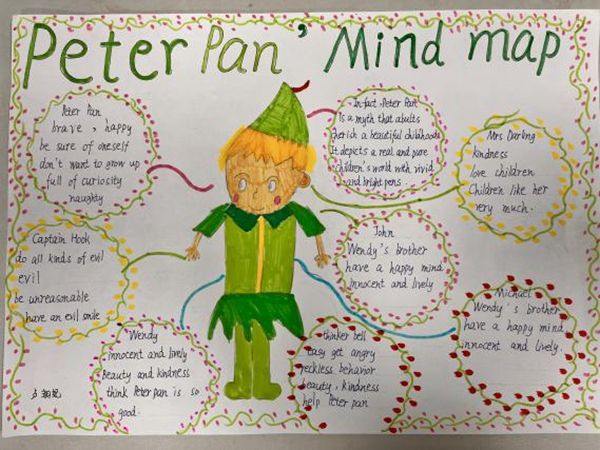 Peter Pan' Mind map
Peter Pan
brave, happy
be sure of oneself
don't want to grow up
full of curiosity
naughty
In fact, Peter Pan
Is a myth that abults
cherish a beautiful childhood.
It depicts a real and pure
children's world with vivid
and bright pens.
Mrs Darling
kindness
love children
Children like her
very much.
Captain Hook
do all kinds of evil
evil
be unreasonable
have an evil smile
John
Wendy's brother
have a happy mind
innocent and lively
Michael
Wendy's brother
have a happy mind
innocent and lively.
Wendy
innocent and lively
Beauty and kindness
think Peter pan is so
good.
thinker bell
easy get angry
reckless behavior
beauty, kindness
help Peter pan